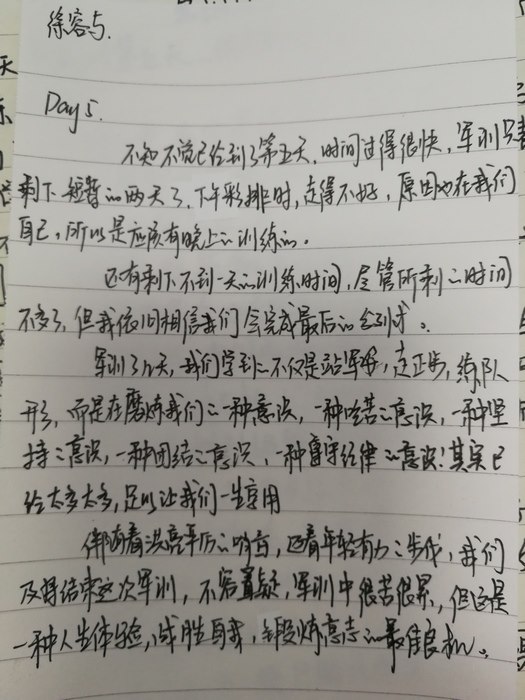 徐容与.
Day 5.
不知不觉已经到了第五天,时间过得很快,军训只
剩下短暂的两天了,下午彩排时,走得不好,原因也在我们
自己,所以是应该有晚上的训练的。
还有剩下不到一天的训练时间,尽管所剩的时间
不多了,但我依旧相信我们会完成最后的
军训了几天,我们学到的不仅是站军姿,走正步,练队
形,而是在磨炼我们的一种意识,一种吃苦的意识,一种坚
持的意识,一种团结的意识,一种遵守纪律的意识!其实已
经太多太多,足以让我们一生享用
伴随着洪亮 的哨音,迈着年轻有力的步伐,我们
及将结束这次军训,不容置疑,军训中很苦很累,但这是
一种人生体验,战胜自我,锻炼意志的最佳良机。